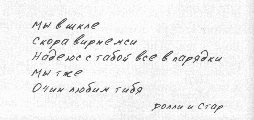 мы в шкле
скора вирнемси
Надеюс с табой все в парядки
мы тже
Очин любим тибя
Долли и Стар